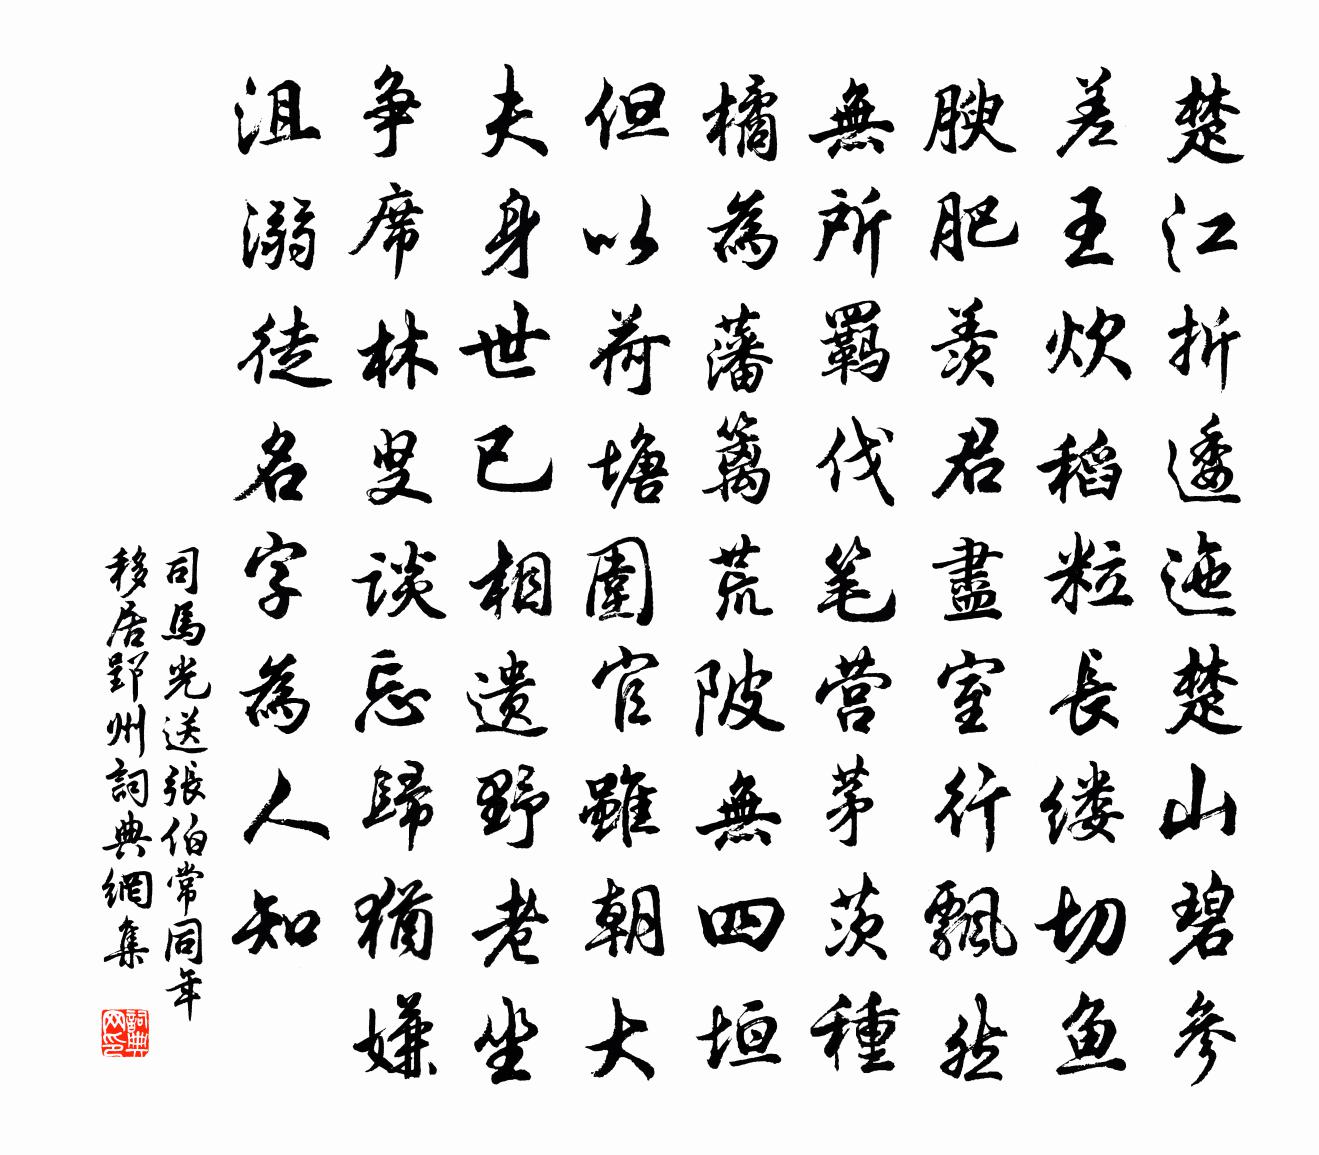 楚江折逶迤楚山碧參
差玉炊稻粒長缕切鱼
腴肥羡君盡室行飄然
無所羁伐笔营茅茨種
橘為藩籬荒陂無四垣
但以荷塘圍官雖朝大
夫身世已相遗野老坐
争席林叟談忘歸猶嫌
沮溺徒名字為人知
司馬光送張伯常同年
移居郢州詞典網集
詞典网印